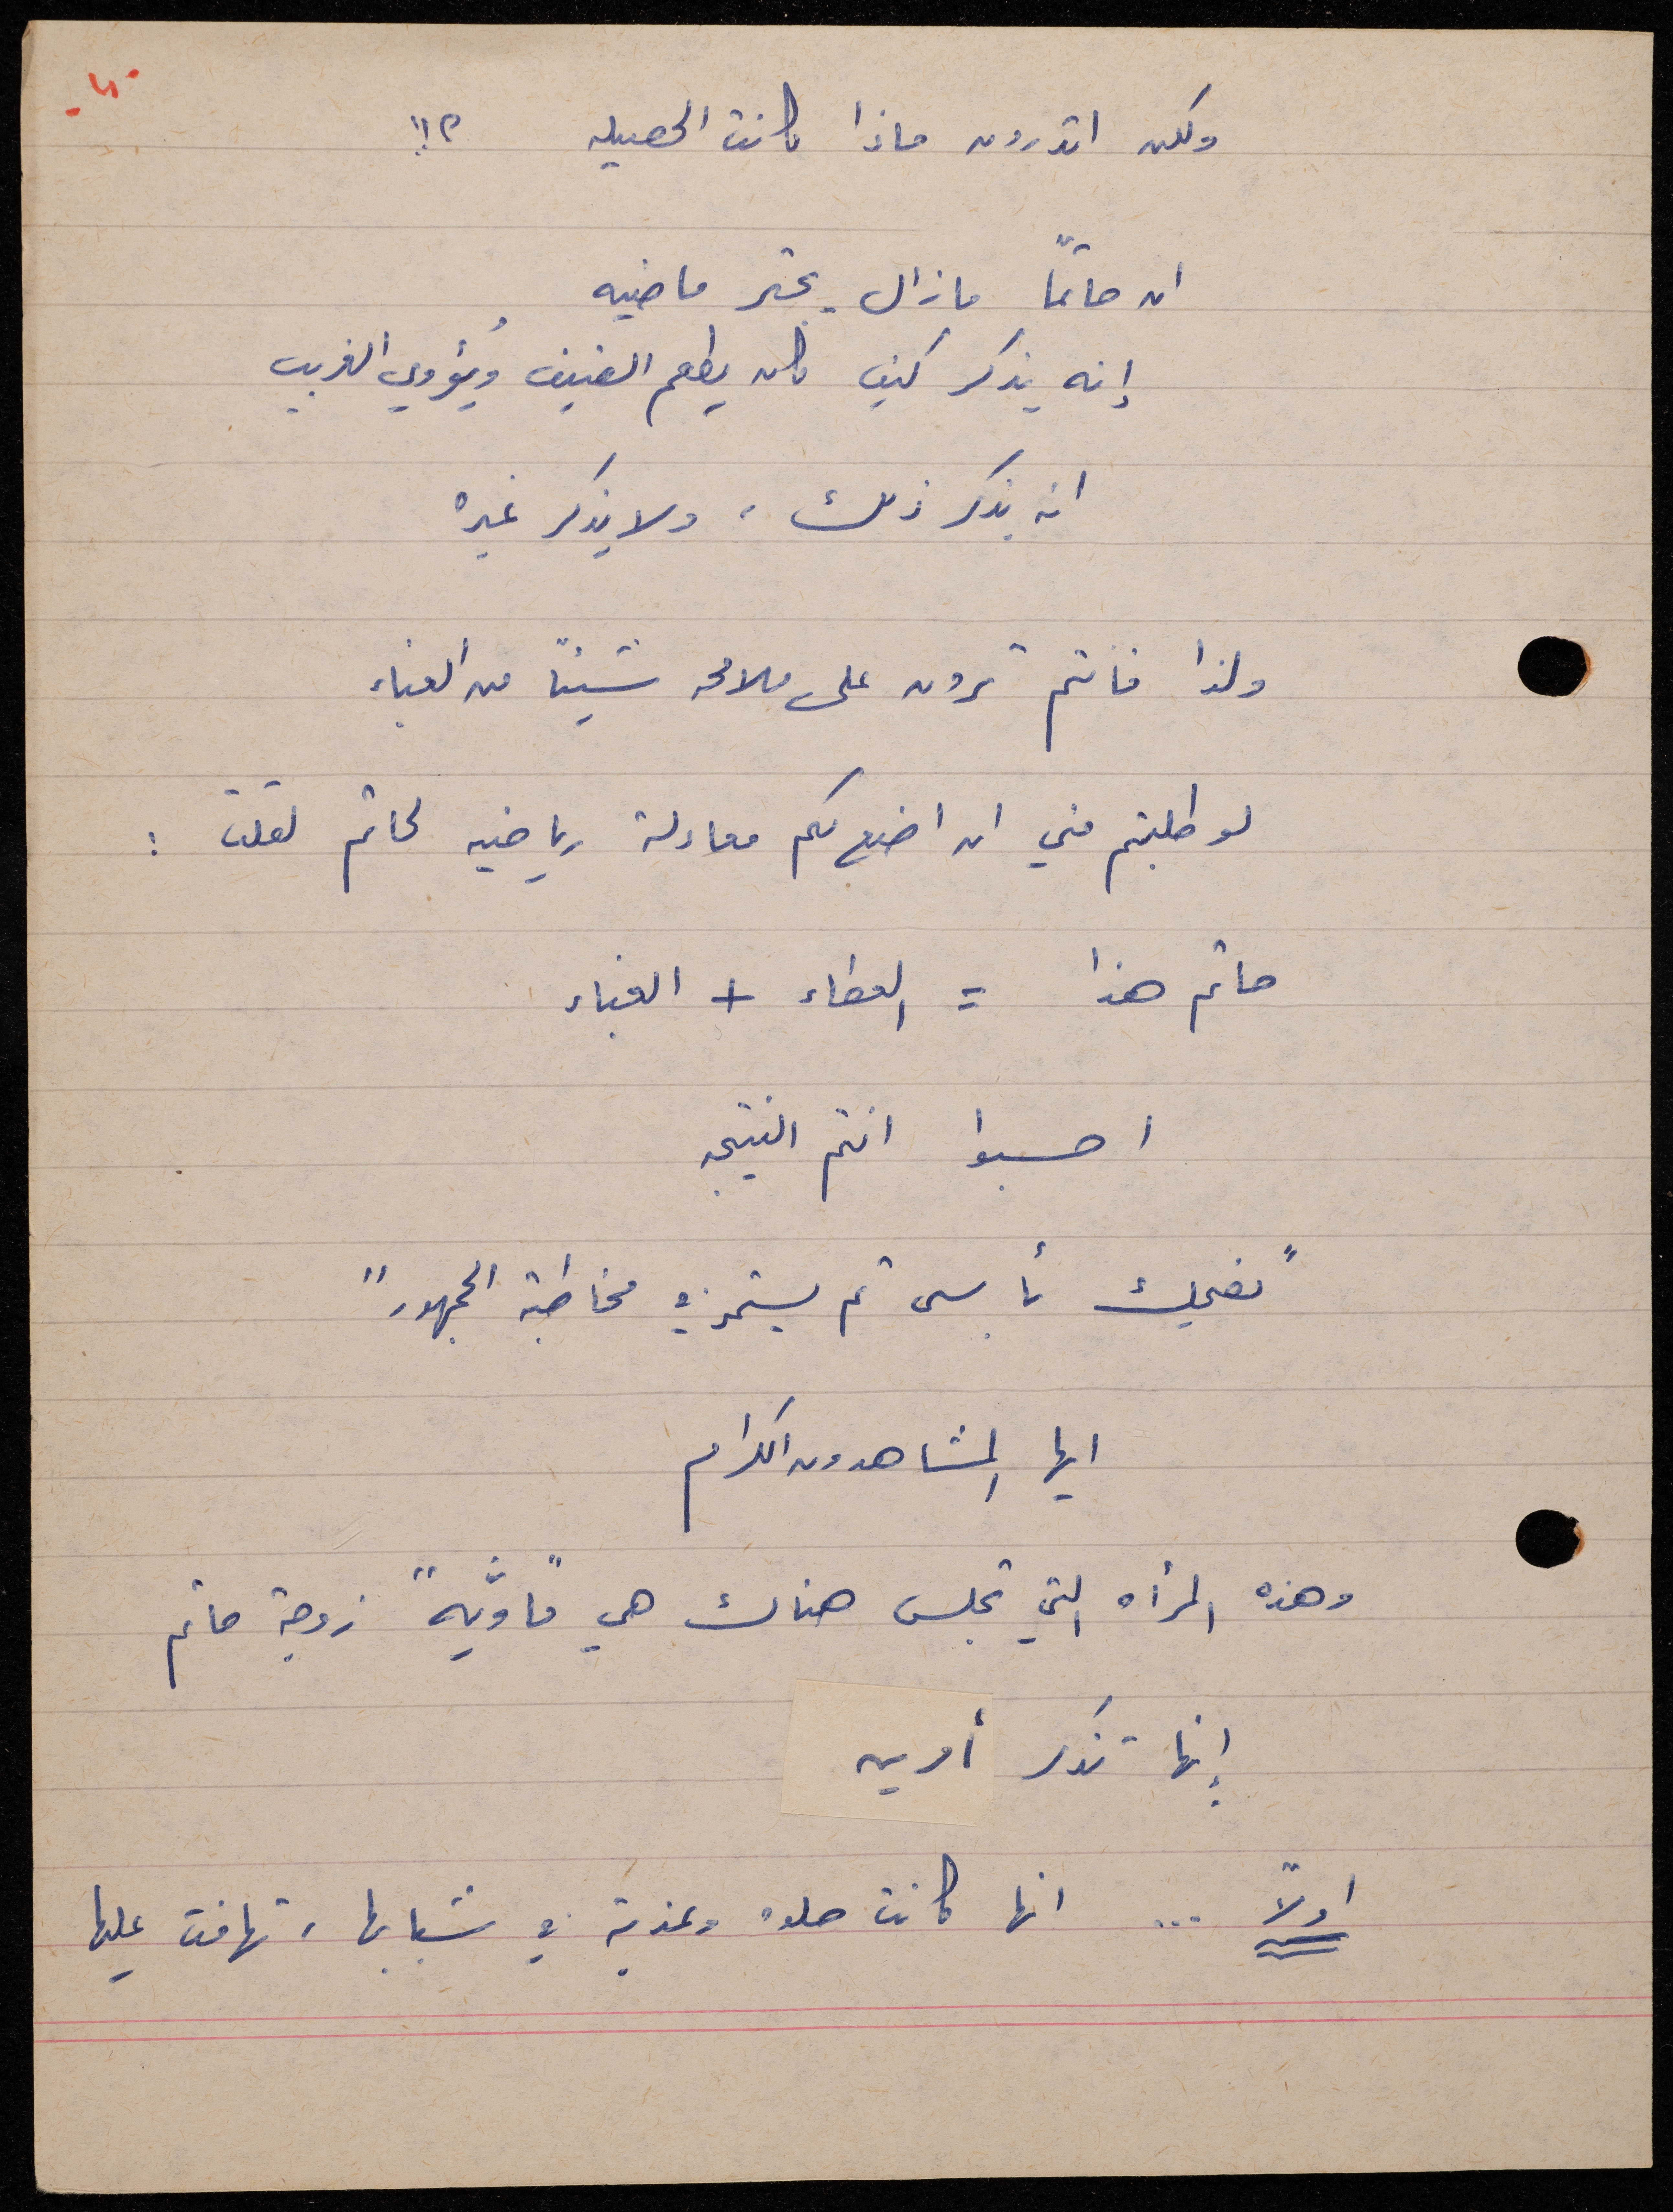 ولكن اتدرون ماذا كانت الحصيله ؟!!
ان حاتمًا مازال يجتر ماضيه
إنه يذكر كيف كان يطعم الضيف ويُؤوي الغريب
انه يذكر ذلك ، ولا يذكر غيره
ولذا فانتم ترون على ملامحه شيئًا من الغباء
لو طلبتم مني ان اضع لكم معادلة رياضيه لحاتم لقلت :
حاتم هذا = العطاء + الغباء
احسبوا انتم النتيجه
"يضحك بأسى ثم يستمر في مخاطبة الجمهور"
ايها المشاهدون الكرام
وهذه المرأه التي تجلس هناك هي "ماويّه" زوجة حاتم
إنها تذكر أمرين
اولاً ... انها كانت حلوه وعذبة في شبابها ، تهافت عليها